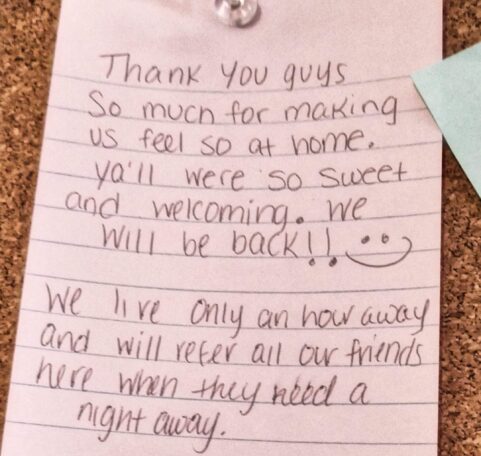 Thank you guys
So much for making
us feel so at home.
ya'll were so sweet
and welcoming. We
will be back!! :)
We live only an hour away
and will refer all our friends
here when they need a
night away.